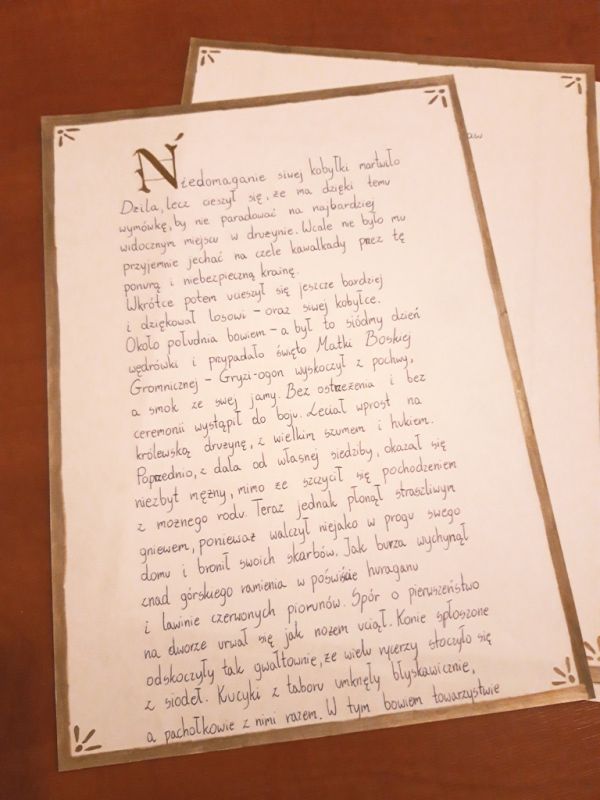 Niedomaganie siwej kobyłki martwiło
Dzila, lecz cieszył się, że ma dzięki temu
wymówkę, by nie paradować na najbardziej
widocznym miejscu w drużynie. Wcale nie było mu
przyjemnie jechać na czele kawalkady przez tę
ponurą i niebezpieczną krainę.
Wkrótce potem ucieszył się jeszcze bardziej
i dziękował Losowi – oraz siwej kobyłce.
Około południa bowiem – a był to siódmy dzień
wędrówki i przypadało święto Matki Boskiej
Gromnicznej – Gryzi-ogon wyskoczył z pochwy,
a smok ze swej jamy. Bez ostrzeżenia i bez
ceremonii wystąpił do boju. Leciał wprost na
królewską drużynę, z wielkim szumem i hukiem.
Poprzednio, z dala od własnej siedziby, okazał się
niezbyt mężny, mimo że szczycił się pochodzeniem
z możnego rodu. Teraz jednak płonął straszliwym
gniewem, ponieważ walczył niejako w progu swego
domu i bronił swoich skarbów. Jak burza wychynął
znad górskiego ramienia w poświście huraganu
i lawinie czerwonych piorunów. Spór o pierwszeństwo
na dworze urwał się jak nożem uciął. Konie spłoszone
odskoczyły tak gwałtownie, że wielu rycerzy stoczyło się
z siodeł. Kucyki z taboru umknęły błyskawicznie,
a pachołkowie z nimi razem. W tym bowiem towarzystwie
aw